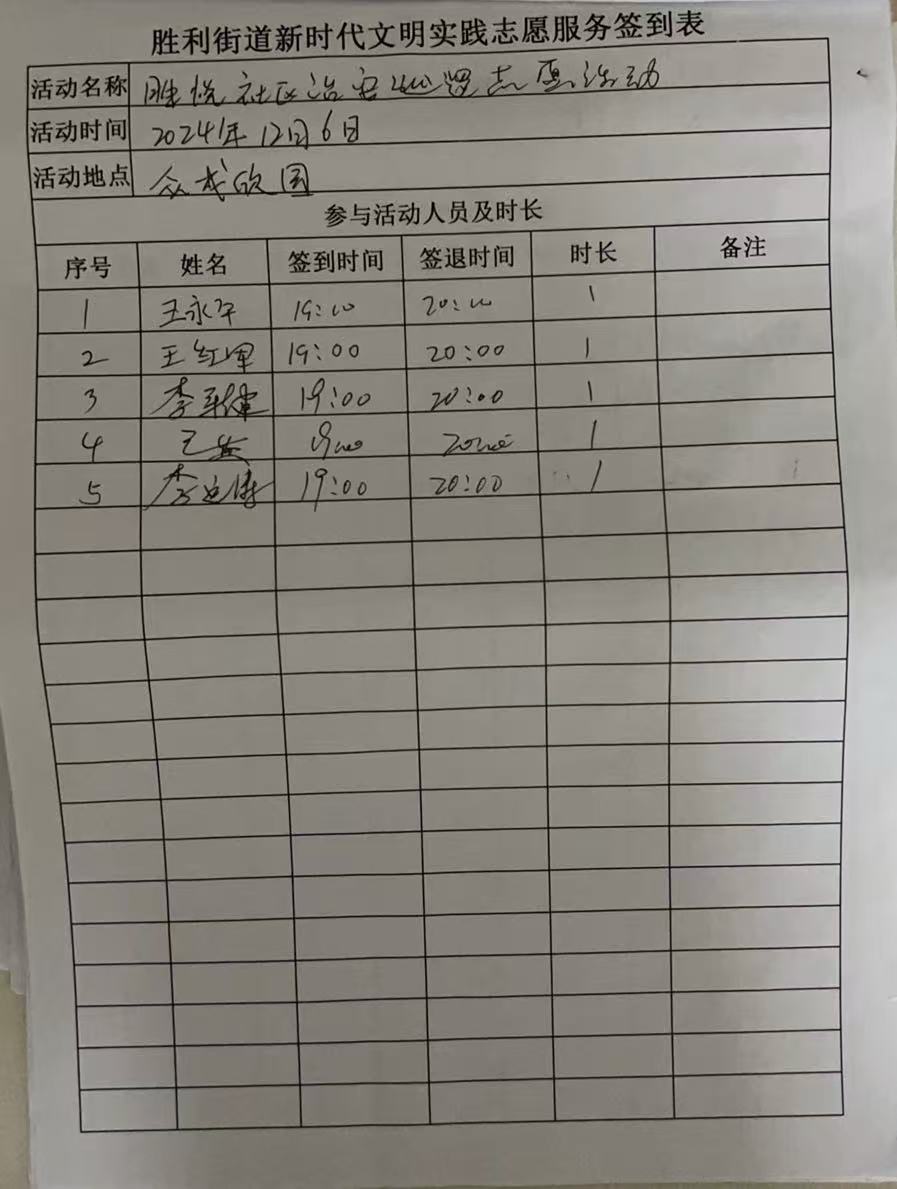 胜利街道新时代文明实践志愿服务签到表
活动名称 胜悦社区治安巡逻志愿活动
活动时间 2024年12月6日
活动地点 众成欣园
参与活动人员及时长
序号 姓名 签到时间 签退时间 时长 备注
1 王永军 19:00 20:00 1
2 王红军 19:00 20:00 1
3 李 19:00 20:00 1
4 王 19:00 20:00 1
5 李 19:00 20:00 1